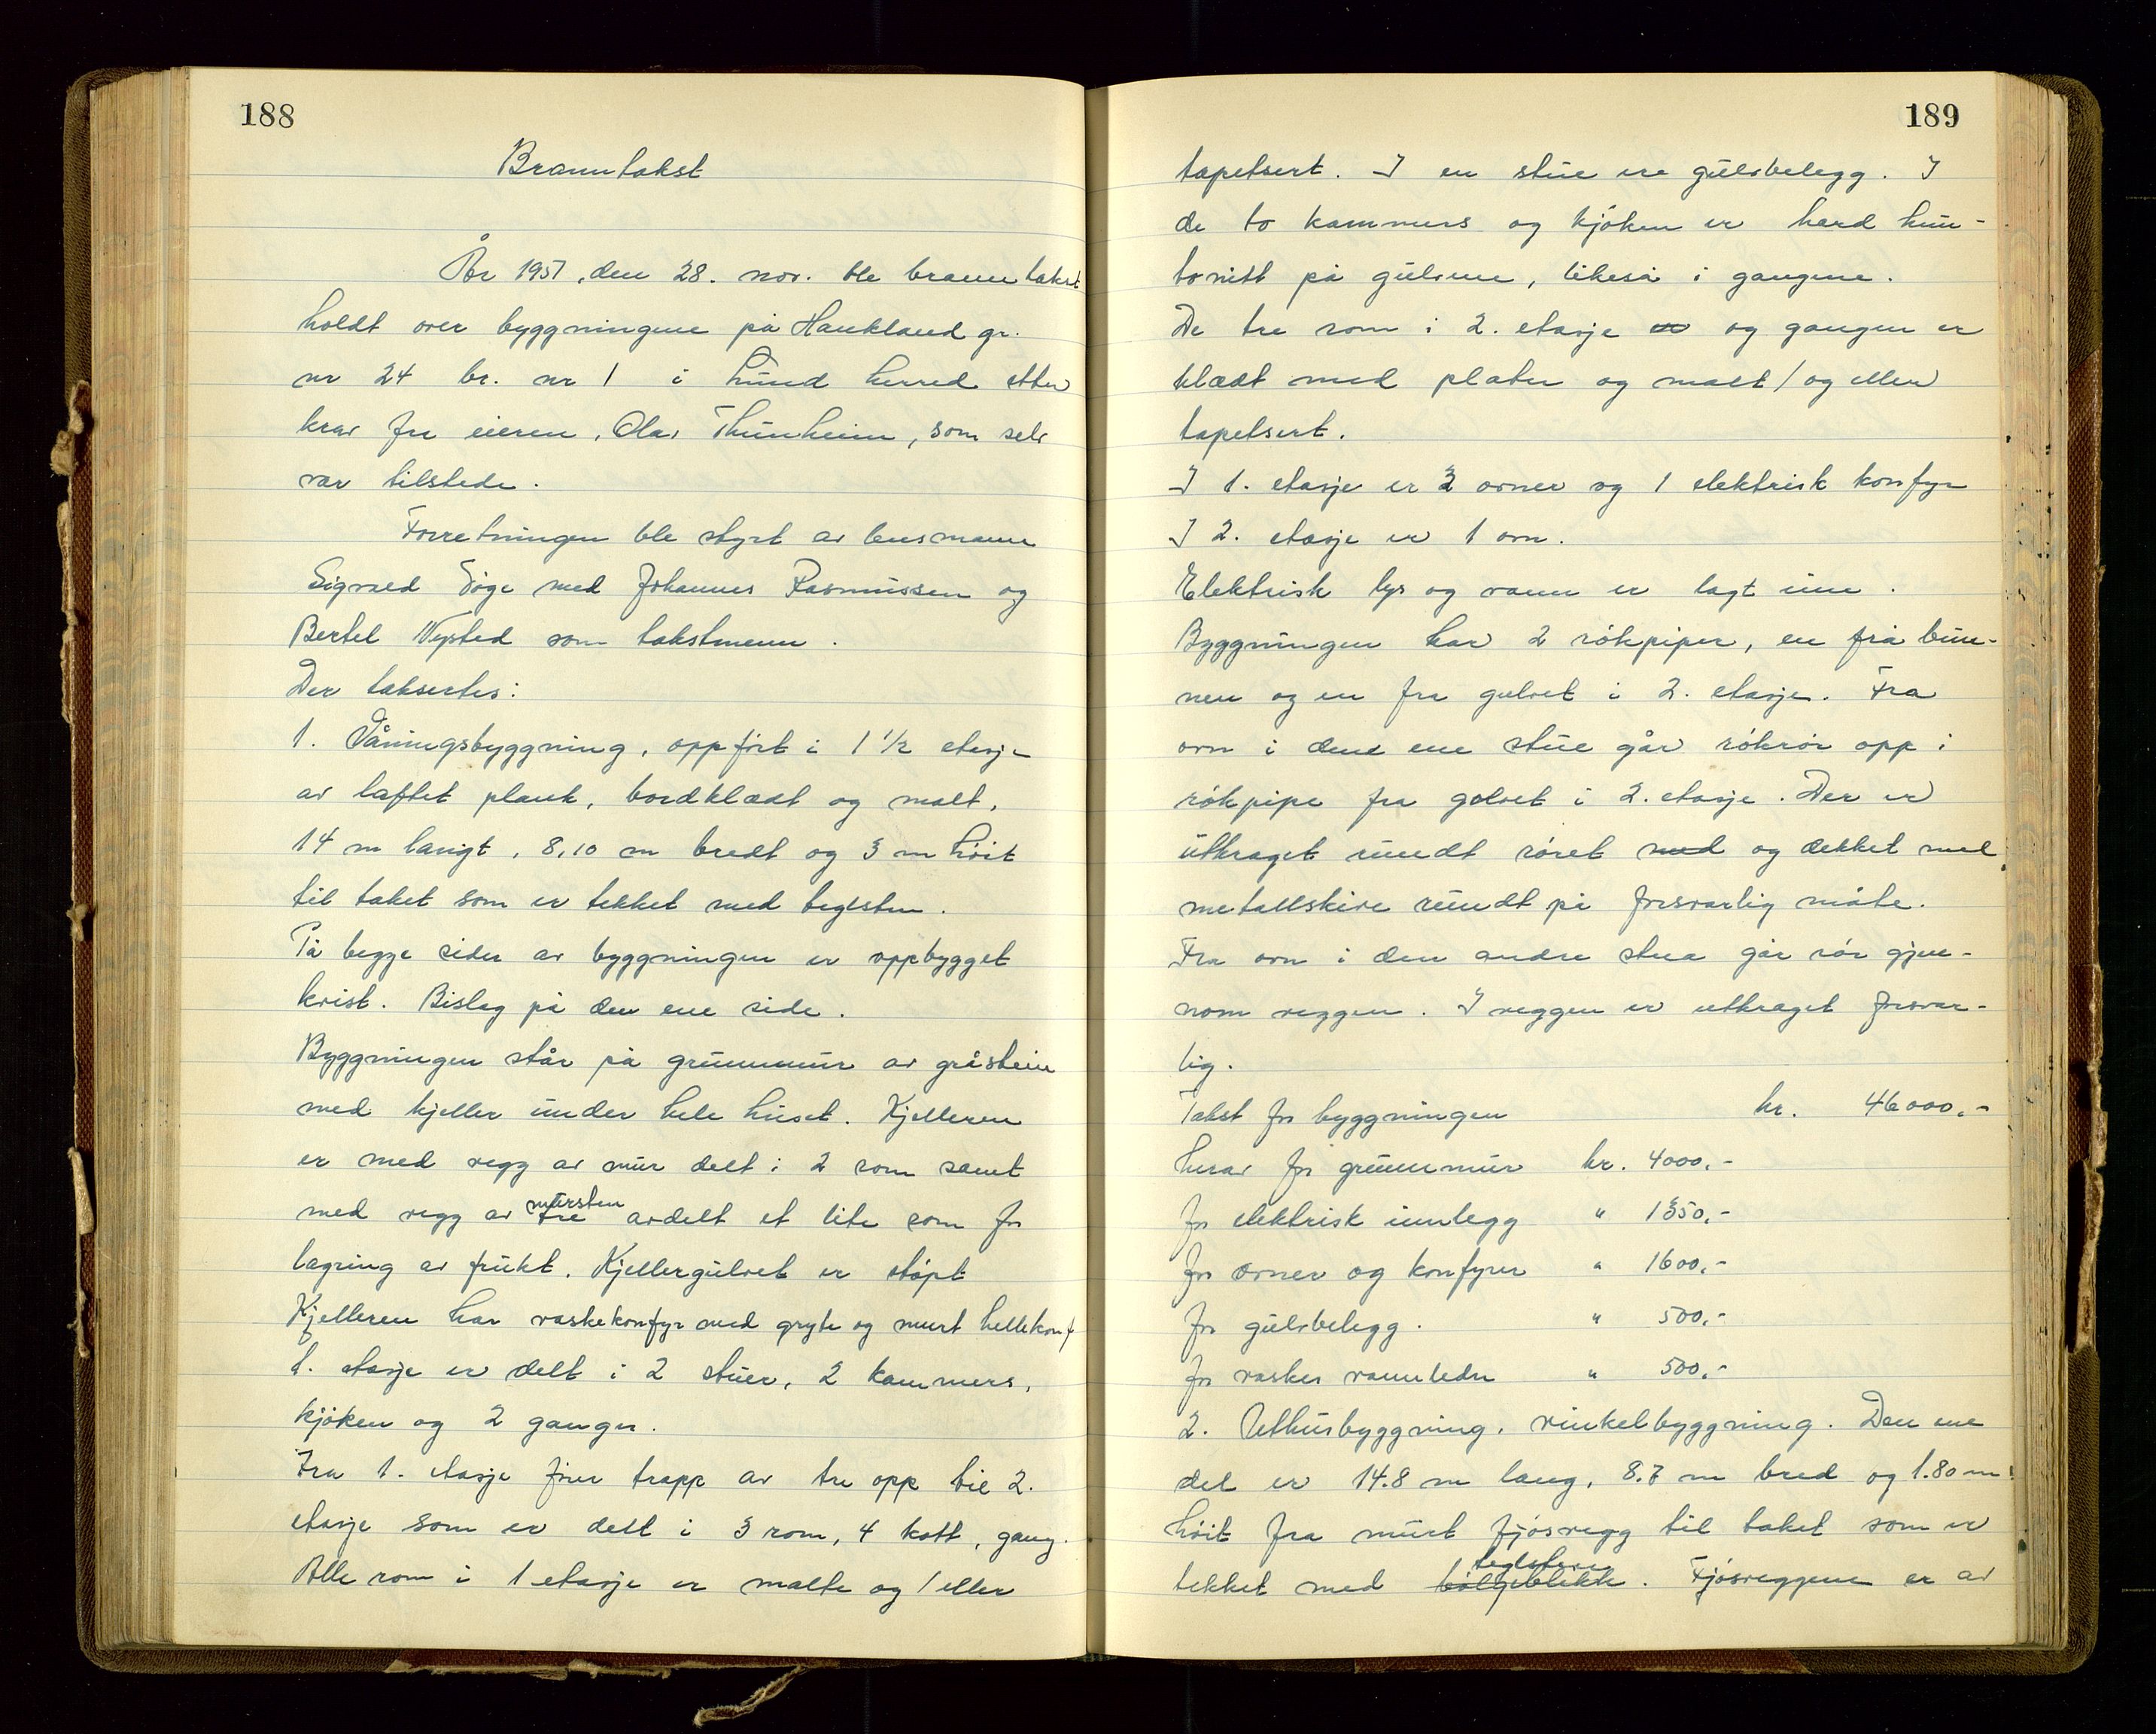 188
Branntakst
År 1957, den 28. nov. ble branntakst
holdt over byggningene på Haukland gr.
nr 24 br. nr 1 i Lund herred etter
krav fra eieren, Olav Thunheim, som selv
var tilstede.
Forretningen ble styrt av lensmann
Sigvald med Johannes Rasmussen og
Bertel Nysted som takstmenn.
Der taksertes:
1. Våningsbyggning, oppført i 1 1/2 etasje
av laftet plank, bordklædt og malt,
14 m langt, 8,10 m bredt og 3 m höit
til taket som er tekket med teglsten.
På begge sider av byggningen er oppbygget
kvist. Bislag på den ene side.
Byggningen står på grunnmur av gråstein
med kjeller under hele huset. Kjelleren
er med vegg av mur delt i 2 rom samt
med vegg av tre mursten avdelt et lite rom for
lagring av frukt. Kjellergulvet er støpt
Kjelleren har vaskekomfyr med gryte og murt hellekomf
1. etasje er delt i 2 stuer, 2 kammers,
kjöken og 2 ganger.
Fra 1. etasje förer trapp av tre opp til 2.
etasje som er delt i 3 rom, 4 kott, gang.
Alle rom i 1 etasje er malte og / eller
189
tapetsert. I en stue er gulvbelegg. I
de to kammers og kjöken er hard hun-
tonitt på gulvene, likeså i gangene.
De tre rom i 2. etasje og gangen er
klædt med plater og malt / og eller
tapetsert.
I 1. etasje er 3 ovner og 1 elektrisk komfyr
I 2. etasje er 1 ovn.
Elektrisk lys og vann er lagt inn.
Byggningen har 2 rökpiper, en frå bun-
nen og en fra gulvet i 2. etasje. Fra
ovn i dene ene stue går rökrör opp i
rökpipe fra golvet i 2. etasje. Der er
utkraget rundt röret med og dekket med
metallskive rundt på forsvarlig måte.
Fra ovn i den andre stua går rör gjen-
nom veggen. I veggen er utkraget forsvar-
lig.
Takst for byggningen kr. 46000,-
herav for grunnmur kr. 4000,-
for elektrisk innlegg " 1350,-
for ovner og komfyrer " 1600,-
for gulvbelegg. " 500,-
for vasker vannledn " 500,-
2. Uthusbyggning, vinkelbyggning. Den ene
del er 14.8 m lang, 8.7 m bred og 1.80 m
höit fra murt fjösvegg til taket som er
tekket med bölgeblikk teglsten. Fjösveggene er av